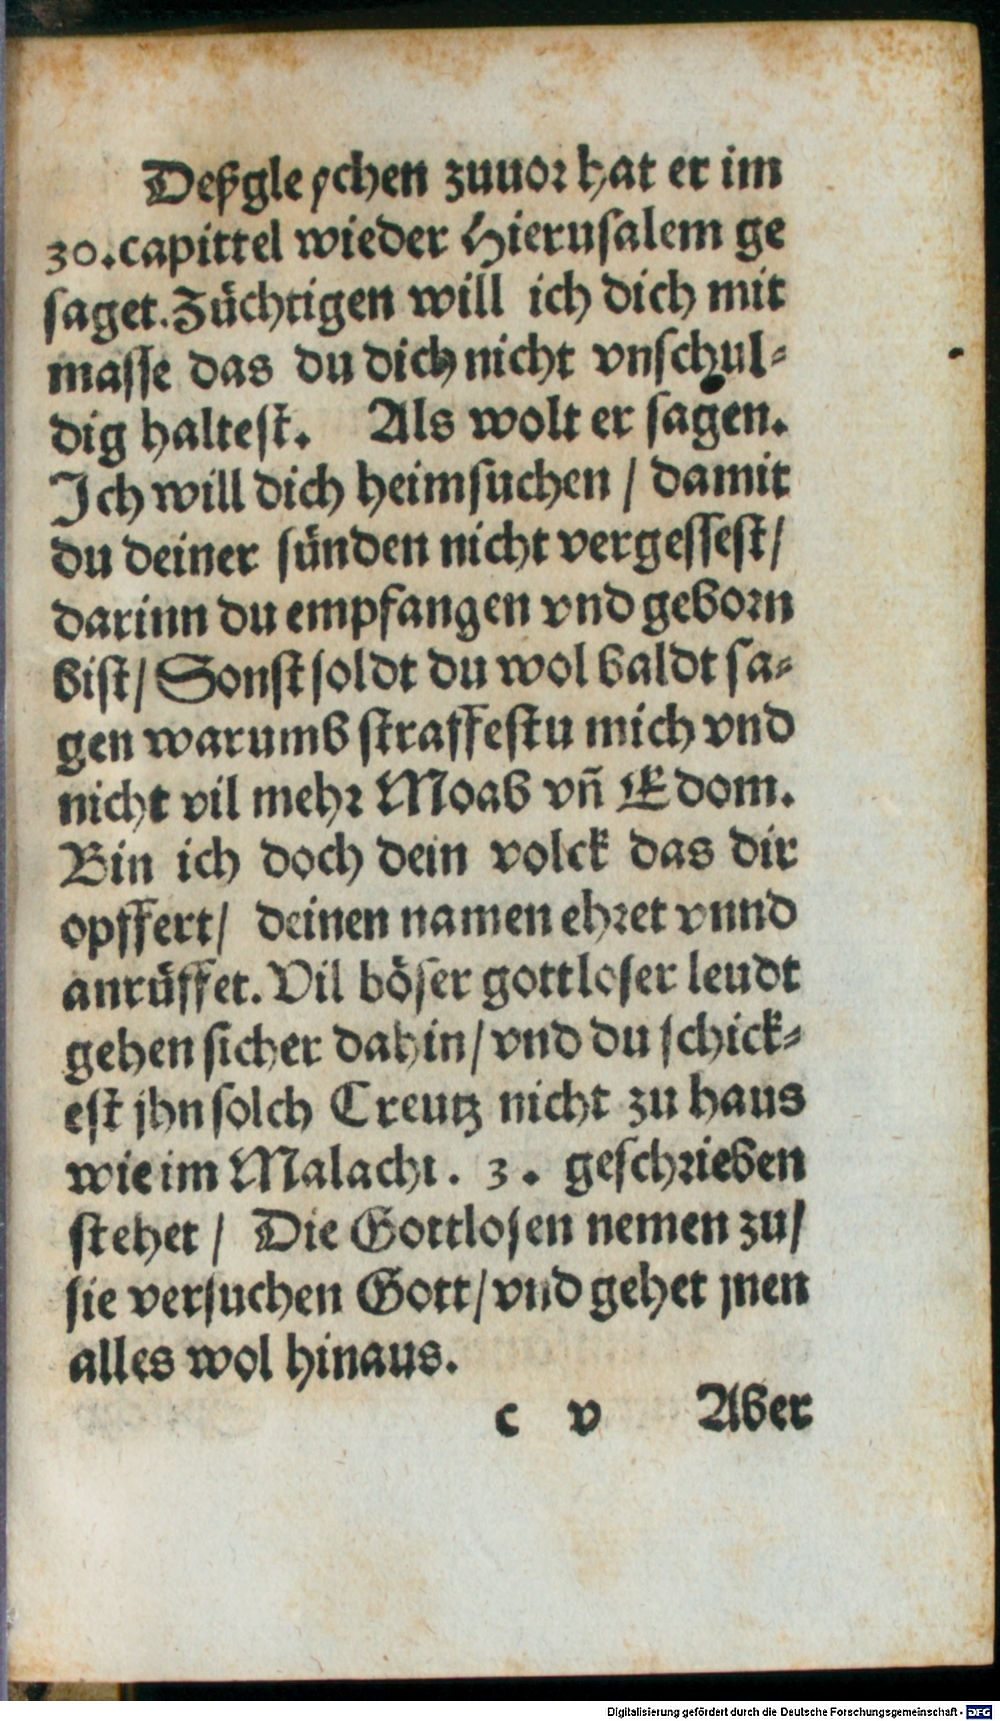 Deßgleychen zuuor hat er im
30.capittel wieder Hierusalem ge
saget. Züchtigen will ich dich mit
masse das du dich nicht vnschul-
dig haltest. Als wolt er sagen.
Ich will dich heimsuchen / damit
du deiner sünden nicht vergessest/
darinn du empfangen vnd geborn
bist/ Sonst soldt du wol baldt sa-
gen warumb straffestu mich vnd
nicht vil mehr Moab vñ Edom.
Bin ich doch dein volck das dir
opffert/ deinen namen ehret vnnd
anrüffet. Vil böser gottloser leudt
gehen sicher dahin/ vnd du schick-
est jhn solch Creutz nicht zu haus
wie im Malachi. 3. geschrieben
stehet / Die Gottlosen nemen zu/
sie versuchen Gott/ vnd gehet jnen
alles wol hinaus.
c v Aber
Digitalisierung gefördert durch die Deutsche Forschungsgemeinschaft - DFG